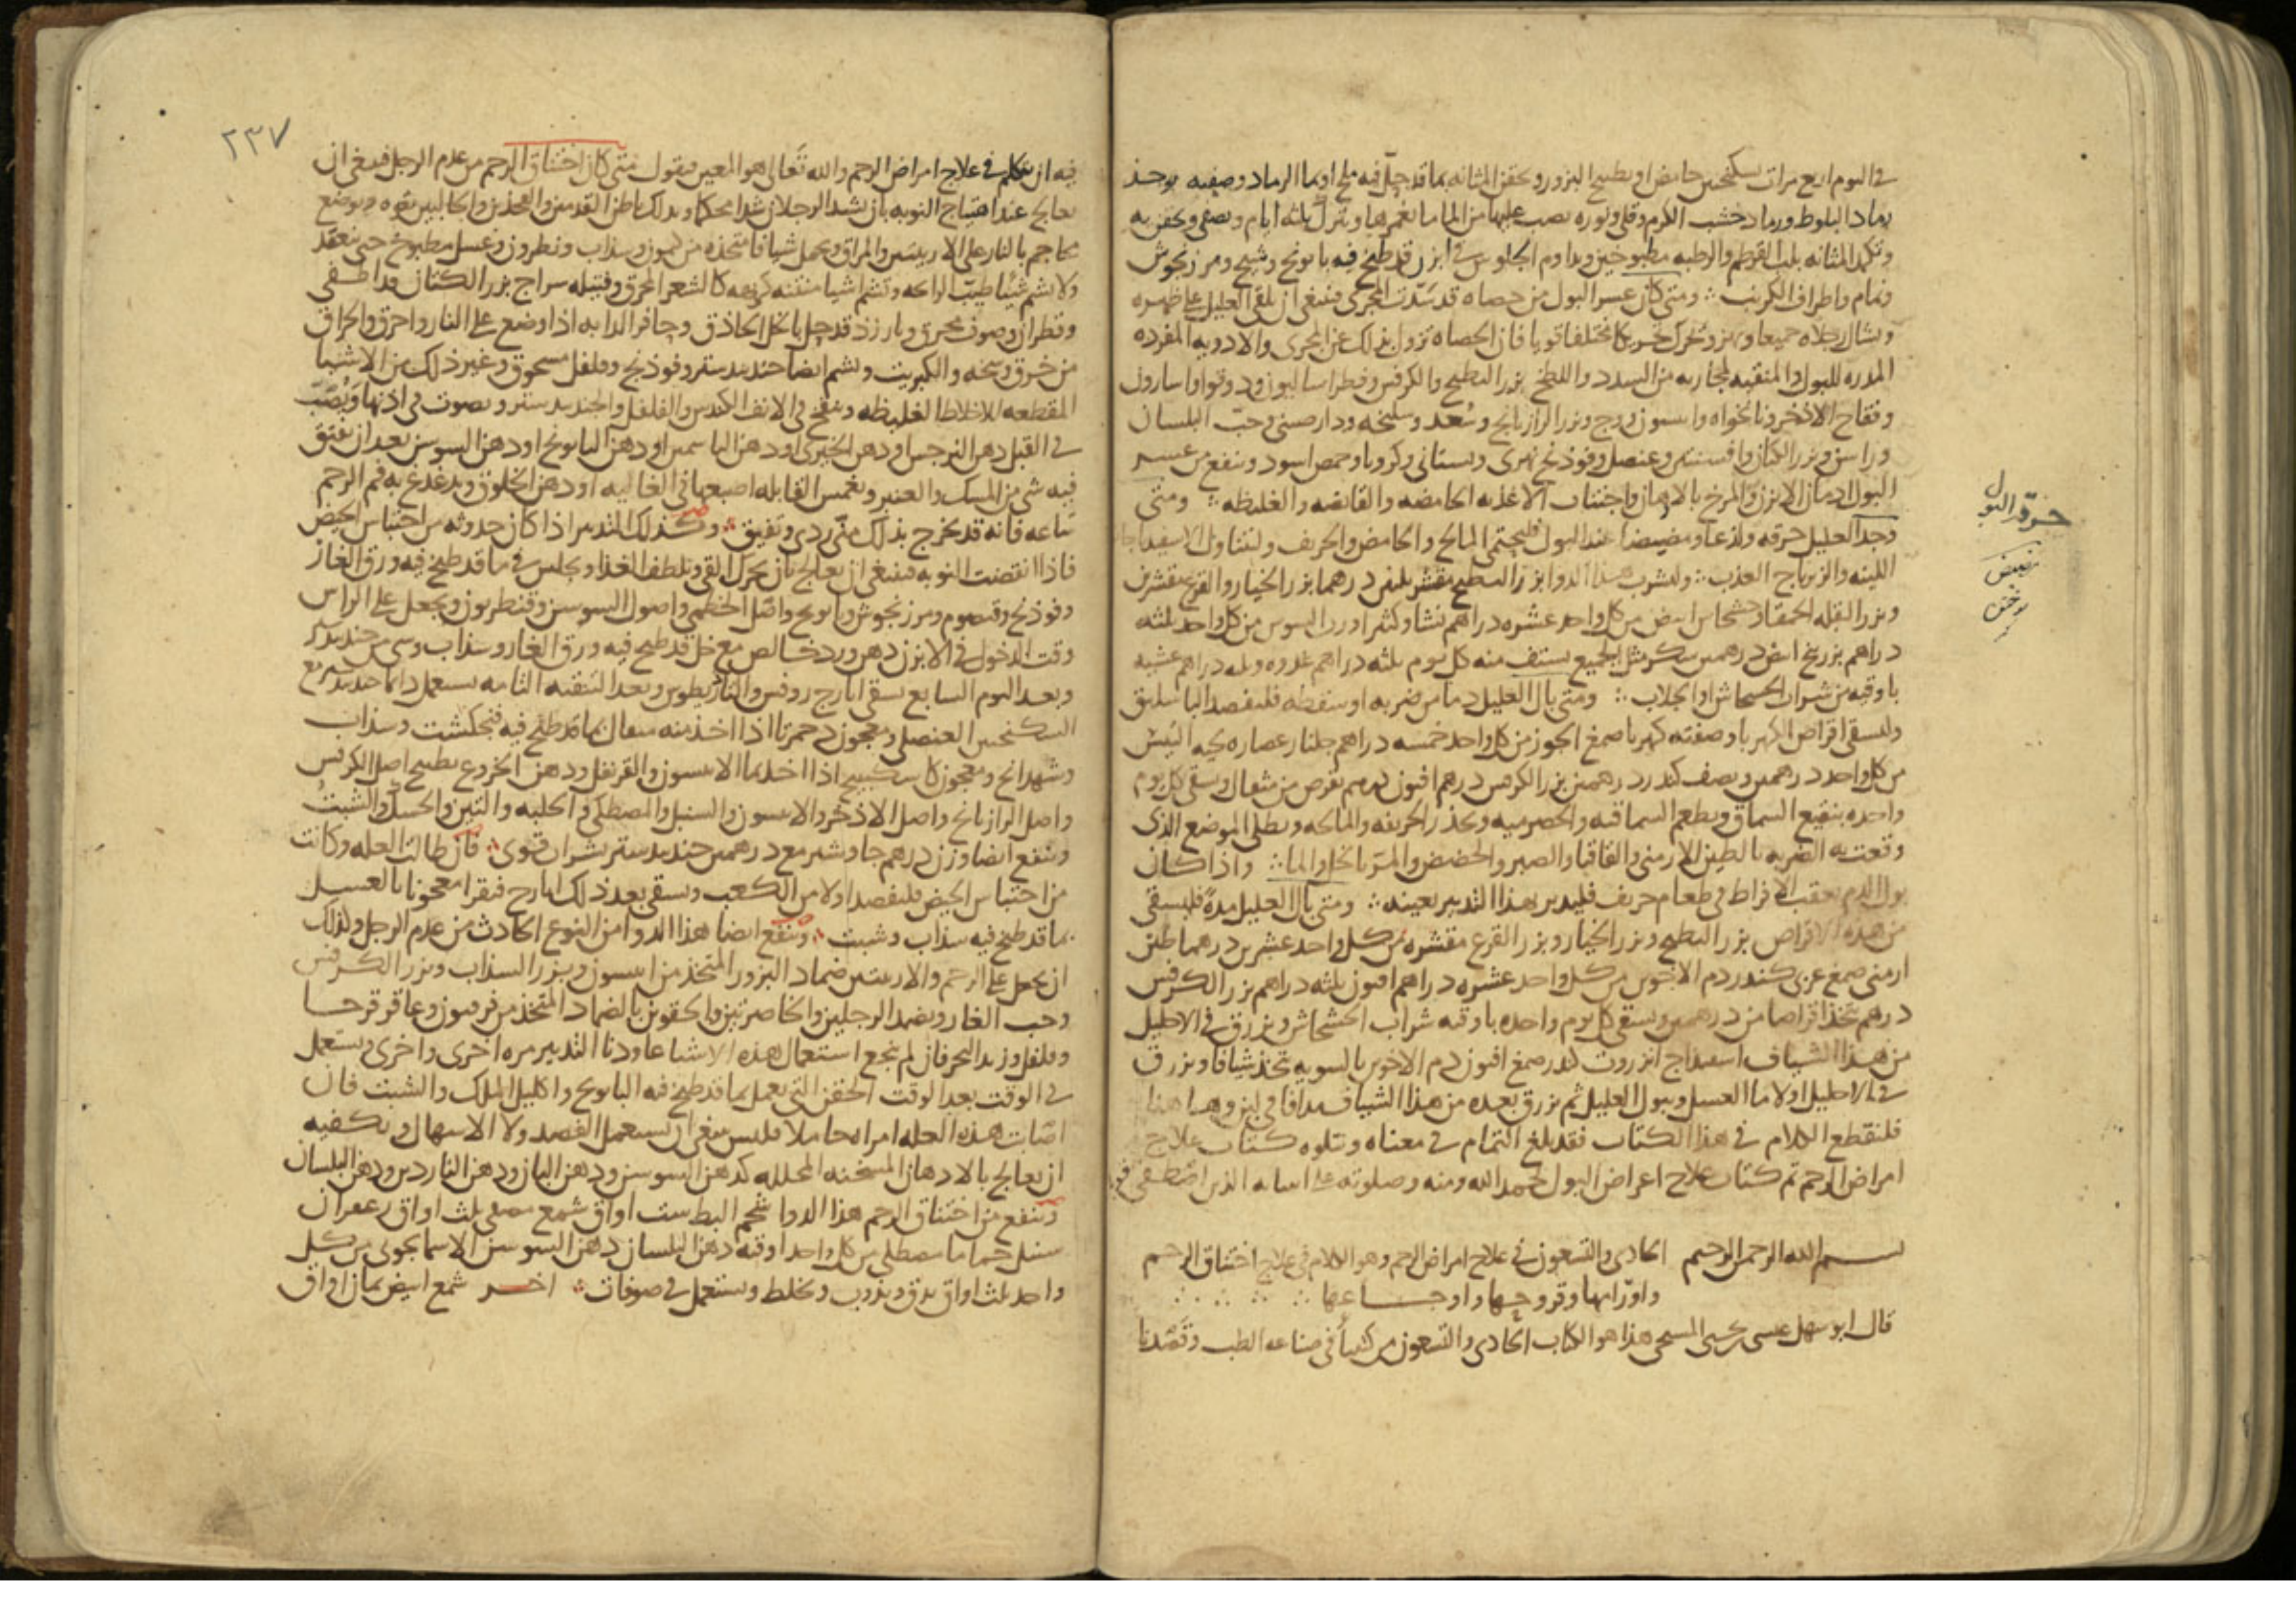 في اليوم اربع مرات بسكنجبين حامض او بطبيخ البزور وتحقن المثانه بما قد حل فيه ملح او بما الرماد وصفته يوخذ
رماد البلوط ورماد خشب الكرم وقلي ونوره يصب عليها من الما ما يغمرها ويترك ثلثه ايام ويصفى وتحقن به
وتكمد المثانه بلب القرطم والرطبه مطبوخين ويداوم الجلوس في ابزن قد طبخ فيه بابونج وشيح ومرزنجوش
ونمام واطراف الكرنب ومتى كان عسر البول من حصاه قد سدت المجرى فينبغي ان يلقى العليل على ظهره
وتشال رجلاه جميعا ويهز ويحرك تحريكا مختلفا قويا فان الحصاه تزول بذلك عن المجرى والادويه المفرده
المدره للبول والمنقيه لمجاريه من السدد واللطخ بزر البطيخ والكرفس وفطراساليون ودوقوا واسارون
وفقاح الاذخر ونانخواه وانيسون ووج وبزر الرازيانج وسعد وسليخه ودارصيني وحب البلسان
وراسن وبزر الكتان وافسنتين وعنصل وفوذنج نهري وبستاني وكرويا وحمص اسود وينفع من عسر
البول ادمان الابزن والمرخ بالادهان واجتناب الاغذيه الحامضه والقابضه والغليظه ومتى
وجد العليل حرقه ولذعا ومضيضا عند البول فليحتمى المالح والحامض والحريف وليتناول الاسفيداجات
اللينه والزيرباج العذب وليشرب هذا الدوا بزر البطيخ مقشر ثلثين درهما بزر الخيار والقرع مقشرين
وبزر البقله الحمقا وخشخاش ابيض من كل واحد عشره دراهم نشا وكثيرا ورب السوس من كل واحد ثلثه
دراهم بزر بنج ابيض درهمين سكر مثل الجميع يستف منه كل يوم ثلثه دراهم غدوه وثلثه دراهم عشيه
باوقيه من شراب الخشخاش او الجلاب ومتى بال العليل دما من ضربه او سقطه فليفصد الباسليق
وليسقى اقراص الكهربا وصفته كهربا صمغ الجوز من كل واحد خمسه دراهم جلنار عصاره لحيه التيس
من كل واحد درهمين ونصف كندر درهمين بزر الكرفس درهم افيون درهم يقرص من مثقال ويسقى كل يوم
واحده بنقيع السماق ويطعم السماقيه والحصرميه ويحذر الحريفه والمالحه ويطلى الموضع الذي
وقعت به الضربه بالطين الارمني والقاقيا والصبر والحضض والمر بالخل والما واذا كان
بول الدم بعقب الافراط في طعام حريف فليدبر بهذا التدبير بعينه ومتى بال العليل مده فليسقى
من هذه الاقراص بزر البطيخ وبزر الخيار وبزر القرع مقشره من كل واحد عشرين درهما طين
ارمني صمغ عربي كندر دم الاخوين من كل واحد عشره دراهم افيون ثلثه دراهم بزر الكرفس
درهم تتخذ اقراصا من درهمين ويسقى كل يوم واحده باوقيه شراب الخشخاش ويزرق في الاحليل
من هذا الشياف اسفيداج انزروت كندر صمغ افيون دم الاخوين بالسويه تتخذ شيافا ويزرق
في الاحليل اولا ما العسل ويبول العليل ثم يزرق بعده من هذا الشياف مدافا في لبن وهاهنا
فلنقطع الكلام في هذا الكتاب فقد بلغ التمام في معناه ويتلوه كتاب علاج
امراض الرحم تم كتاب علاج اعراض البول بحمد الله ومنه وصلوته على انبيائه الذين اصطفى
بسم الله الرحمن الرحيم الحادي والتسعون في علاج امراض الرحم وهو الكلام في علاج اختناق الرحم
واورامها وقروحها واوجاعها
قال ابو سهل عيسى بن يحيى المسيحي هذا هو الكتاب الحادي والتسعون من كتبنا في صناعه الطب وقصدنا
حرقه البول
٢٣٧
فيه ان نتكلم في علاج امراض الرحم والله تعالى هو المعين فنقول متى كان اختناق الرحم من عدم الرجل فينبغي ان
يعالج عند اهتياج النوبه بان يشد الرجلان شدا محكما ويدلك باطن القدمين والفخذين والحالبين بقوه ويوضع
محاجم بالنار على الاربيتين والمراق وتحمل شيافا متخذه من كمون وسذاب ونطرون وعسل مطبوخ حتى ينعقد
ولا تشم شيئا طيب الرائحه وتشم اشيا منتنه كريهه كالشعر المحرق وفتيله سراج بزر الكتان وقد اطفي
وقطران وصوف محرق وبارزذ قد حل بالخل الحاذق وحافر الدابه اذا وضع على النار واحرق والحراق
من خرق وسخه والكبريت وتشم ايضا جندبيدستر وفوذنج وفلفل مسحوق وغير ذلك من الاشيا
المقطعه للاخلاط الغليظه وينفخ في الانف الكندس والفلفل والجندبيدستر ويصوت في اذنها ويصب
في القبل دهن النرجس او دهن الخيري او دهن الياسمين او دهن البابونج او دهن السوسن بعد ان يفتق
فيه شي من المسك والعنبر وتغمس القابله اصبعها في الغاليه او دهن الخلوق ويدغدغ به فم الرحم
ساعه فانه قد يخرج بذلك مني ردي وتفيق وكذلك التدبير اذا كان حدوثه من احتباس الحيض
فاذا انقضت النوبه فينبغي ان يعالج بان يحرك القي ويلطف الغذا ويجلس في ما قد طبخ فيه ورق الغار
وفوذنج وقيصوم ومرزنجوش وبابونج واصل الخطمي واصول السوسن وقنطريون ويجعل على الراس
وقت الدخول في الابزن دهن ورد خالص مع خل قد طبخ فيه ورق الغار وسذاب وشي من جندبيدستر
وبعد اليوم السابع يسقى ايارج روفس والثيادريطوس وبعد التنقيه التامه يستعمل دائما جندبيدستر مع
السكنجبين العنصلي ومعجون دحمرثا اذا اخذ منه مثقال بما قد طبخ فيه فنجكشت وسذاب
وشهدانج ومعجون كاسكبينج اذا اخذ بما الانيسون والقرنفل ودهن الخروع بطبيخ اصل الكرفس
واصل الرازيانج واصل الاذخر والانيسون والسنبل والمصطكي والحلبه والتين والحسك والشبث
وينفع ايضا وزن درهم جاوشير مع درهمين جندبيدستر بشراب قوي فان طالت العله وكانت
من احتباس الحيض فليفصد اولا من الكعب ويسقى بعد ذلك ايارج فيقرا معجونا بالعسل
بما قد طبخ فيه سذاب وشبت وينفع ايضا هذا الدوا من النوع الحادث من عدم الرجل ولذلك
ان يجعل على الرحم والاربيتين ضماد البزور المتخذ من انيسون وبزر السذاب وبزر الكرفس
وحب الغار ويضمد الرجلين والخاصرتين والحقوين بالضماد المتخذ من فرفيون وعاقرقرحا
وفلفل وزبد البحر فان لم ينجع استعمال هذه الاشيا عاودنا التدبير مره اخرى واخرى ويستعمل
في الوقت بعد الوقت الحقن التي تعمل بما قد طبخ فيه البابونج واكليل الملك والشبت فان
اصابت هذه العله امراه حاملا فليس ينبغي ان يستعمل الفصد ولا الاسهال ويكفيه
ان يعالج بالادهان المسخنه المحلله كدهن السوسن ودهن البان ودهن الناردين ودهن البلسان
وينفع من اختناق الرحم هذا الدوا شحم البط ست اواق شمع مصفى ثلث اواق زعفران
سنبل حماما مصطكي من كل واحد اوقيه دهن البلسان دهن السوسن الاسمانجوني من كل
واحد ثلث اواق يدق ويذوب ويخلط ويستعمل في صوفات اخر شمع ابيض ثمان اواق